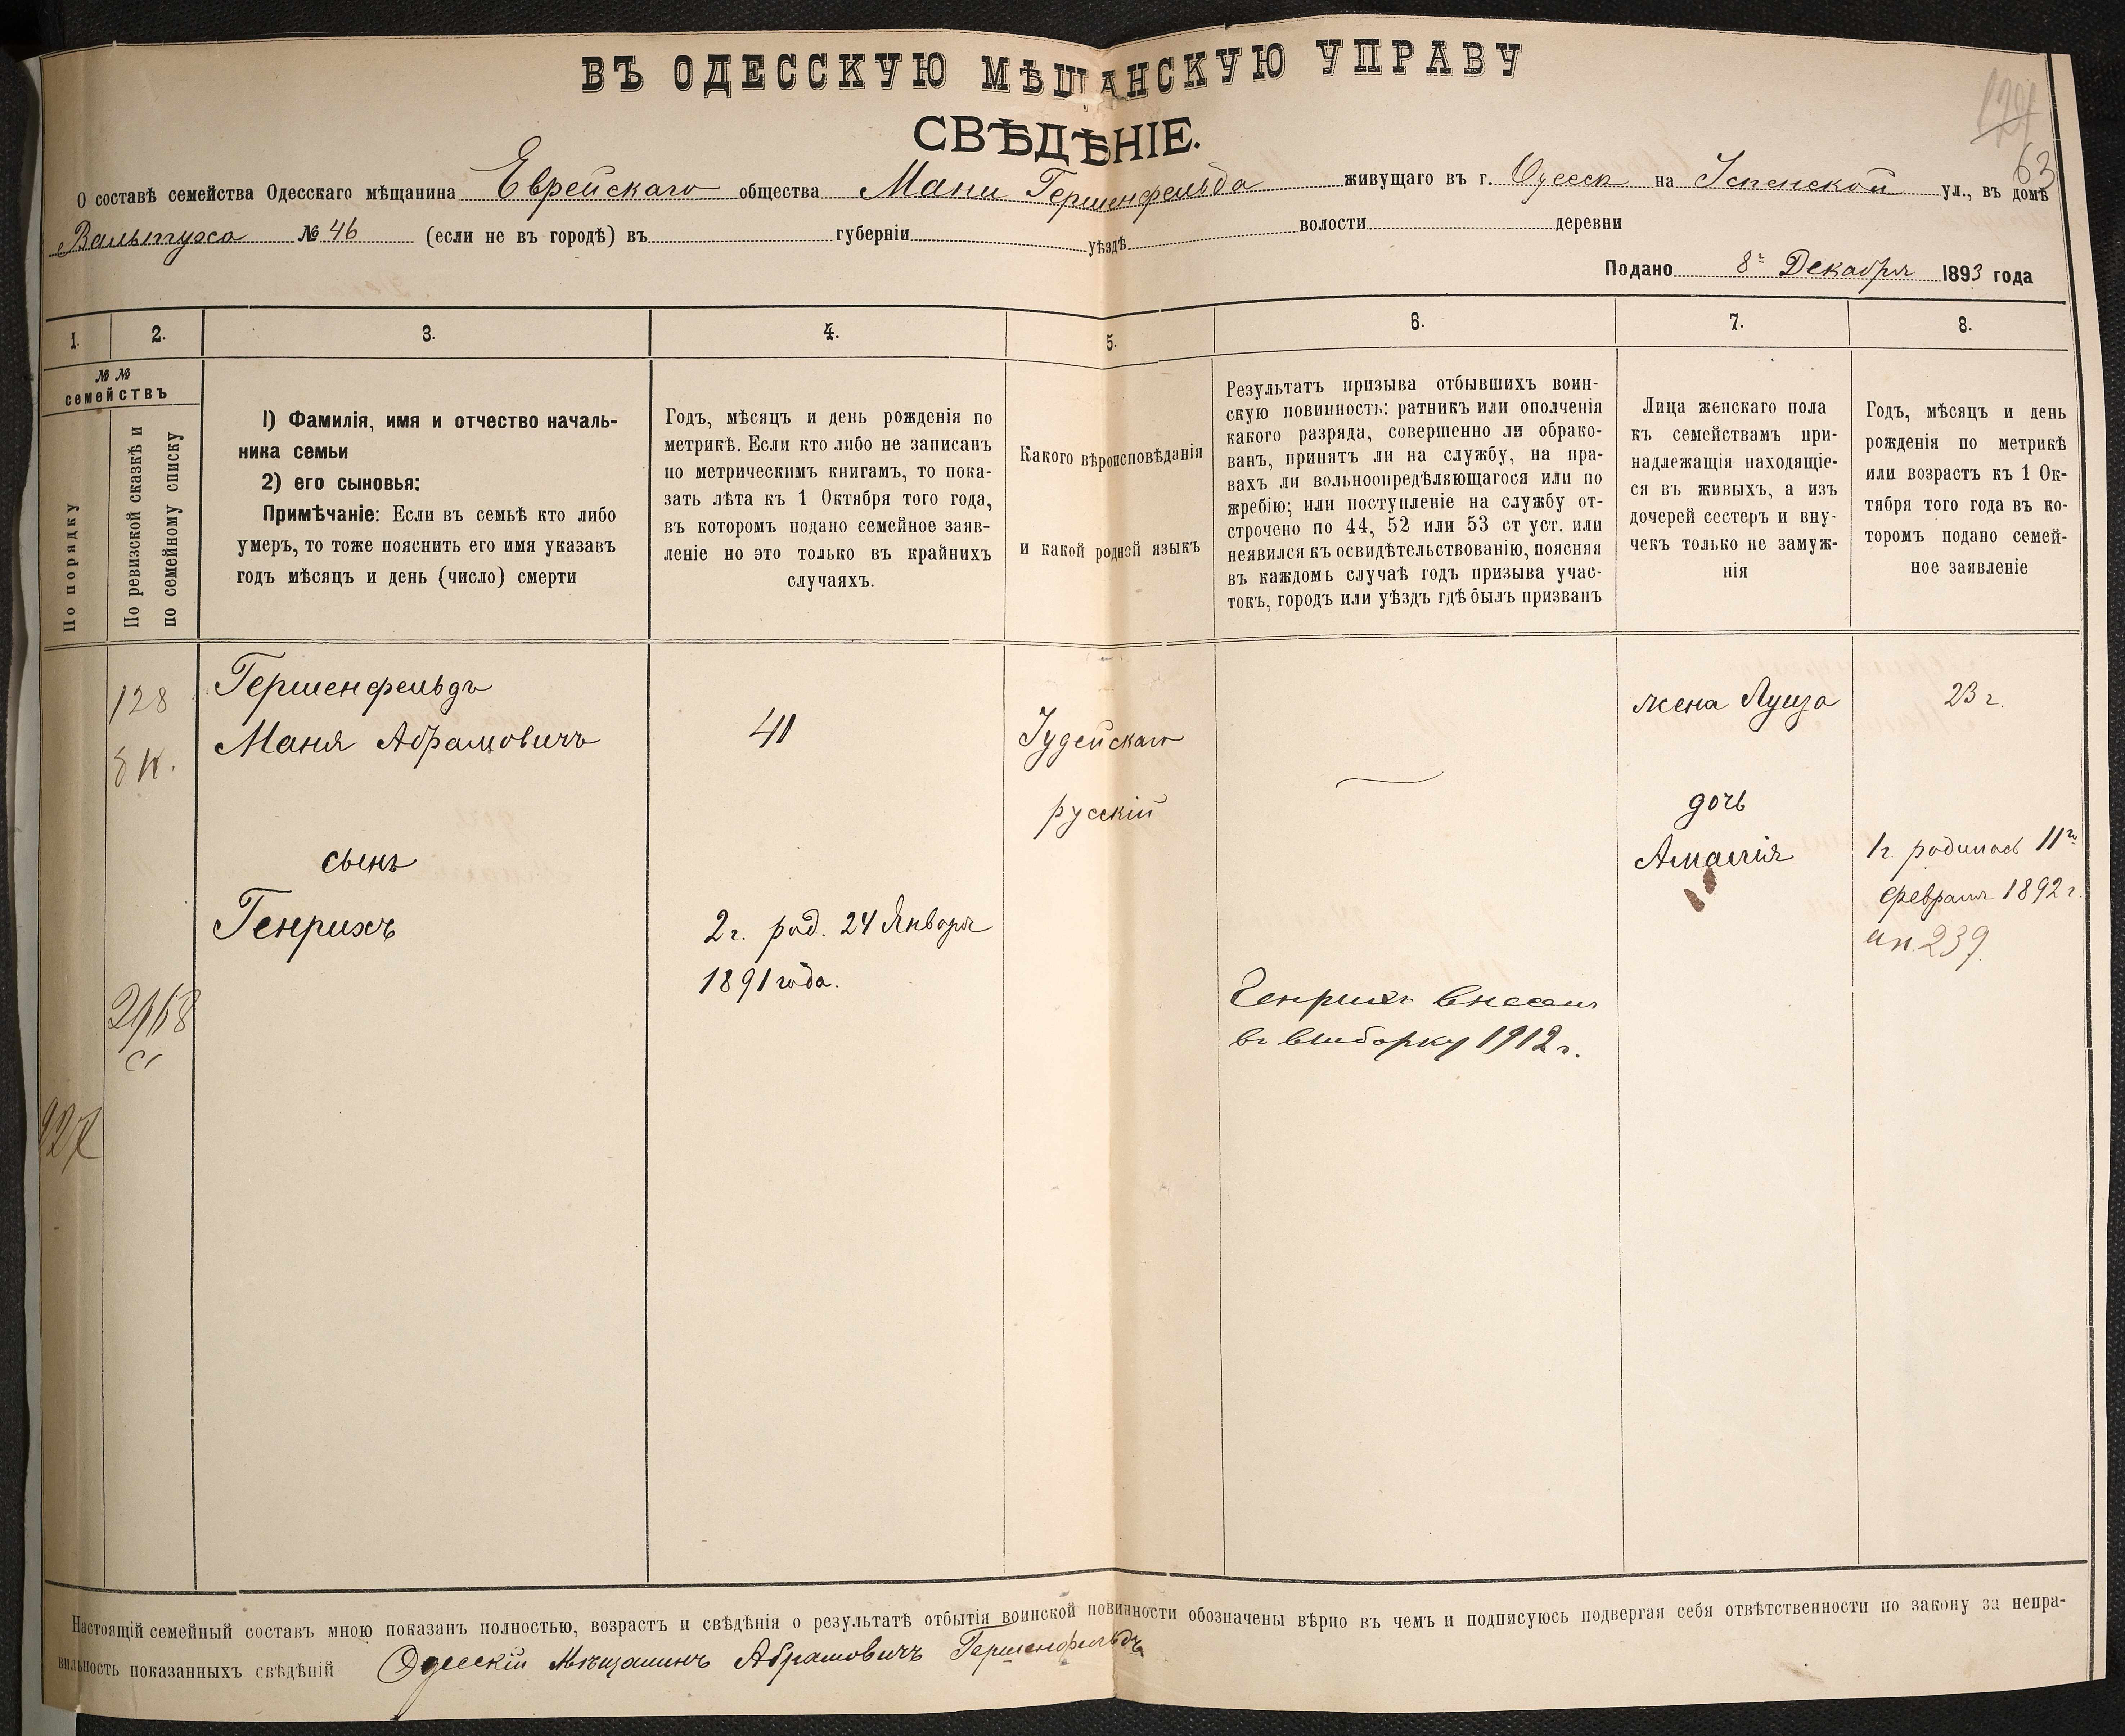 ВЪ ОДЕССКУЮ МѢЩАНСКУЮ УПРАВУ
СВѢДѢНІЕ.
О составѣ семейства Одесскаго мѣщанина Еврейскаго общества Мани Гершенфельда живущаго въ г. Одессѣ на Успенской ул., въ домѣ
63
Вальтуха № 46 (если не въ городѣ) въ губерніи уѣздѣ волости деревни
Подано 8г Декабря 1893 года
1. 2. 3. 4. 5. 6. 7. 8.
№ №
семействъ
По порядку
По ревизской сказкѣ и
по семейному списку
1) Фамилія, имя и отчество началь-
ника семьи
2) его сыновья:
Примѣчаніе: Если въ семьѣ кто либо
умеръ, то тоже пояснить его имя указавъ
годъ мѣсяцъ и день (число) смерти
Годъ, мѣсяцъ и день рожденія по
метрикѣ. Если кто либо не записанъ
по метрическимъ книгамъ, то пока-
зать лѣта къ 1 Октября того года,
въ которомъ подано семейное заяв-
леніе но это только въ крайнихъ
случаяхъ.
Какого вѣроисповѣданія
и какой родной языкъ
Результатъ призыва отбывшихъ воин-
скую повинность: ратникъ или ополченія
какого разряда, совершенно ли обрако-
ванъ, принятъ ли на службу, на пра-
вахъ ли вольноопредѣляющагося или по
жребію; или поступленіе на службу от-
строчено по 44, 52 или 53 ст уст. или
неявился къ освидѣтельствованію, поясняя
въ каждомъ случаѣ годъ призыва учас-
токъ, городъ или уѣздъ гдѣ былъ призванъ
Лица женскаго пола
къ семействамъ при-
надлежащія находящіе-
ся въ живыхъ, а изъ
дочерей сестеръ и вну-
чекъ только не замуж-
нія
Годъ, мѣсяцъ и день
рожденія по метрикѣ
или возрастъ къ 1 Ок-
тября того года въ ко-
торомъ подано семей-
ное заявленіе
128
Гершенфельдъ
Маня Абрамовичъ
41
Іудейскаго
русскій
жена Луиза
23 г.
дочь
Амалія
1 г. родилась 11го
февраля 1892 г.
ап. 239.
сынъ
Генрихъ
2 г. род. 24 Января
1891 года.
Генрихъ внесенъ
въ выборку 1912 г.
2168
927
Настоящій семейный составъ мною показанъ полностью, возрастъ и свѣдѣнія о результатѣ отбытія воинской повинности обозначены вѣрно въ чемъ и подписуюсь подвергая себя отвѣтственности по закону за непра-
вильность показанныхъ свѣдѣній Одесскій Мѣщанинъ Абрамовичъ Гершенфельдъ